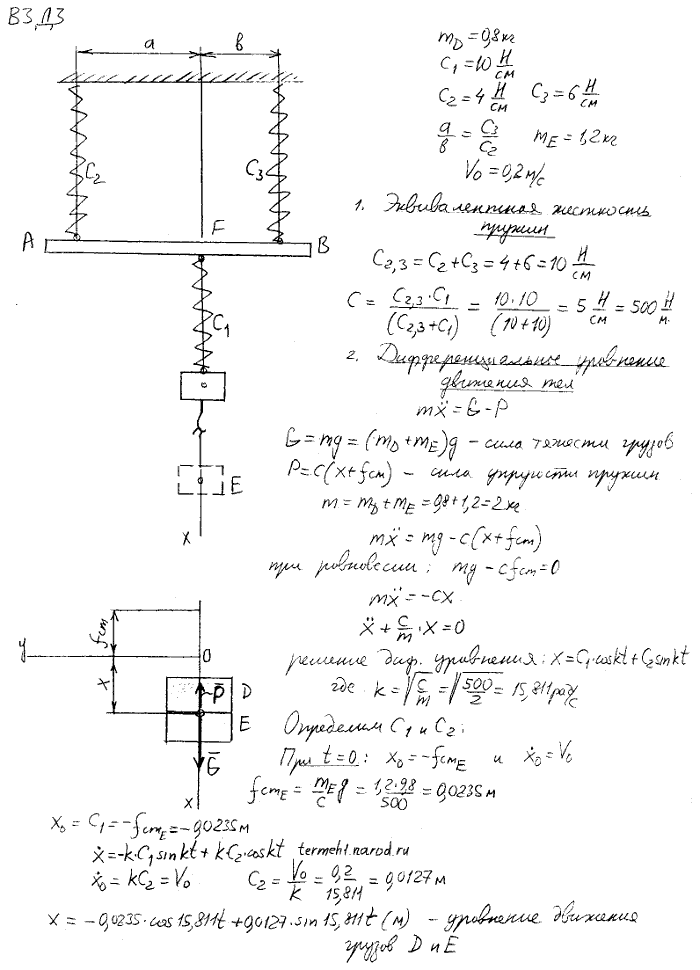 В3, Д3
a
в
C₂
C₃
A
F
B
C₁
E
x
m_D = 0,8 кг
C₁ = 10 Н/см
C₂ = 4 Н/см C₃ = 6 Н/см
a/в = C₃/C₂ m_E = 1,2 кг
V₀ = 0,2 м/с
1. Эквивалентная жесткость
пружин
C₂,₃ = C₂ + C₃ = 4 + 6 = 10 Н/см
C = C₂,₃·C₁/(C₂,₃+C₁) = 10·10/(10+10) = 5 Н/см = 500 Н/м.
2. Дифференциальное уровнение
движения тел
mẍ = G - P
G = mg = (m_D + m_E)g - сила тяжести грузов
P = c(x + fст) - сила упругости пружин
m = m_D + m_E = 0,8 + 1,2 = 2 кг
mẍ = mg - c(x + fст)
при ровновесии: mg - cfст = 0
mẍ = -cx
ẍ + c/m · x = 0
fст
y
0
x
P̅
D
E
G̅
x
решение диф. уровнения: x = C₁·coskt + C₂sinkt
где k = √(c/m) = √(500/2) = 15,811 рад/с
Определим C₁ и C₂:
При t = 0: x₀ = -fстE и ẋ₀ = V₀
fстE = m_E g/c = 1,2·9,8/500 = 0,0235 м
x₀ = C₁ = -fстE = -0,0235 м
ẋ = -k·C₁sinkt + kC₂·coskt termeh1.narod.ru
ẋ₀ = kC₂ = V₀ C₂ = V₀/k = 0,2/15,811 = 0,0127 м
x = -0,0235·cos15,811t + 0,0127·sin15,811t (м) - уровнение движения
грузов D и E